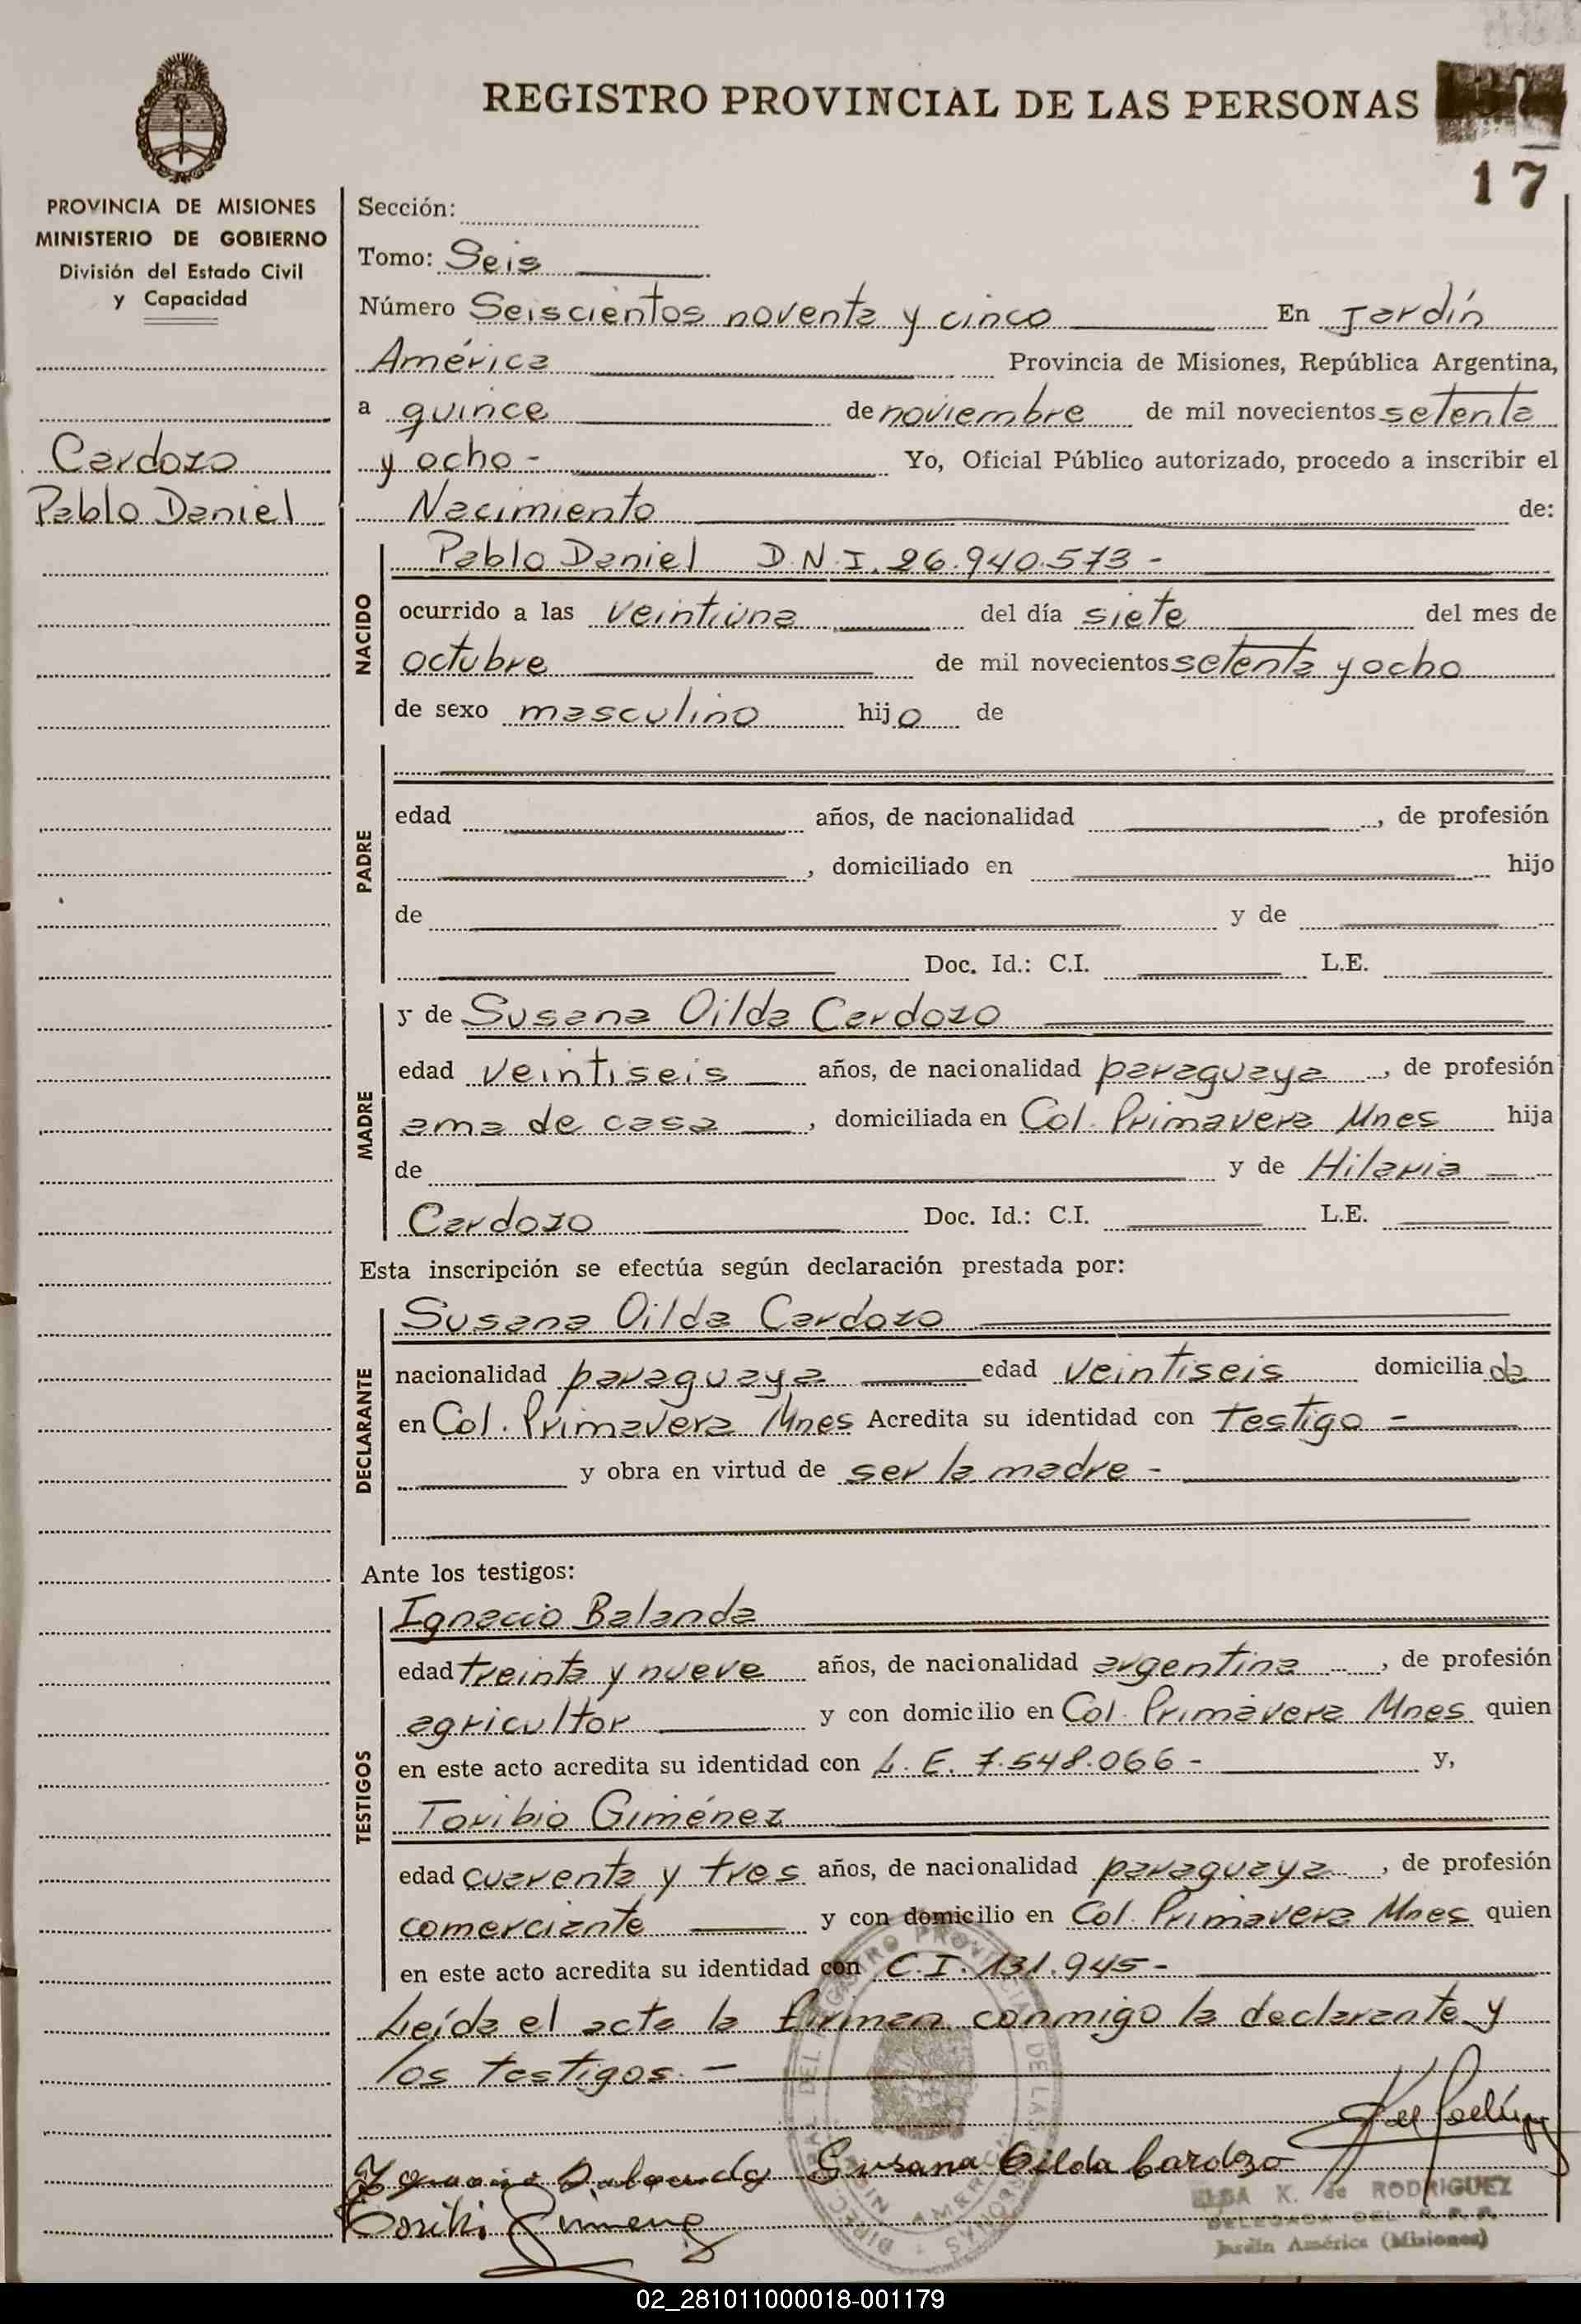 REGISTRO PROVINCIAL DE LAS PERSONAS
17
PROVINCIA DE MISIONES
MINISTERIO DE GOBIERNO
División del Estado Civil
y Capacidad
Cardozo
Pablo Daniel
Sección:
Tomo: Seis
Número Seiscientos noventa y cinco En Jardín
América Provincia de Misiones, República Argentina,
a quince de noviembre de mil novecientos setenta
y ocho - Yo, Oficial Público autorizado, procedo a inscribir el
Nacimiento de:
NACIDO
Pablo Daniel D.N.I. 26.940.573 -
ocurrido a las veintiuna del día siete del mes de
octubre de mil novecientos setenta y ocho
de sexo masculino hijo de
PADRE
edad años, de nacionalidad , de profesión
, domiciliado en hijo
de y de
Doc. Id.: C.I. L.E.
MADRE
y de Susana Oilda Cardozo
edad veintiseis años, de nacionalidad paraguaya , de profesión
ama de casa , domiciliada en Col. Primavera Mnes hija
de y de Hilaria
Cardozo Doc. Id.: C.I. L.E.
Esta inscripción se efectúa según declaración prestada por:
DECLARANTE
Susana Oilda Cardozo
nacionalidad paraguaya edad veintiseis domiciliada
en Col. Primavera Mnes Acredita su identidad con testigo -
y obra en virtud de ser la madre -
Ante los testigos:
TESTIGOS
Ignacio Balanda
edad treinta y nueve años, de nacionalidad argentina , de profesión
agricultor y con domicilio en Col. Primavera Mnes quien
en este acto acredita su identidad con L.E. 7.548.066 - y,
Toribio Giménez
edad cuarenta y tres años, de nacionalidad paraguaya , de profesión
comerciante y con domicilio en Col. Primavera Mnes quien
en este acto acredita su identidad con C.I. 131.945 -
Leída el acta la firman conmigo la declarante y
los testigos. -
Susana Oilda Cardozo
ELBA K. de RODRIGUEZ
DELEGADA DEL R.P.P.
Jardín América (Misiones)
02_281011000018-001179